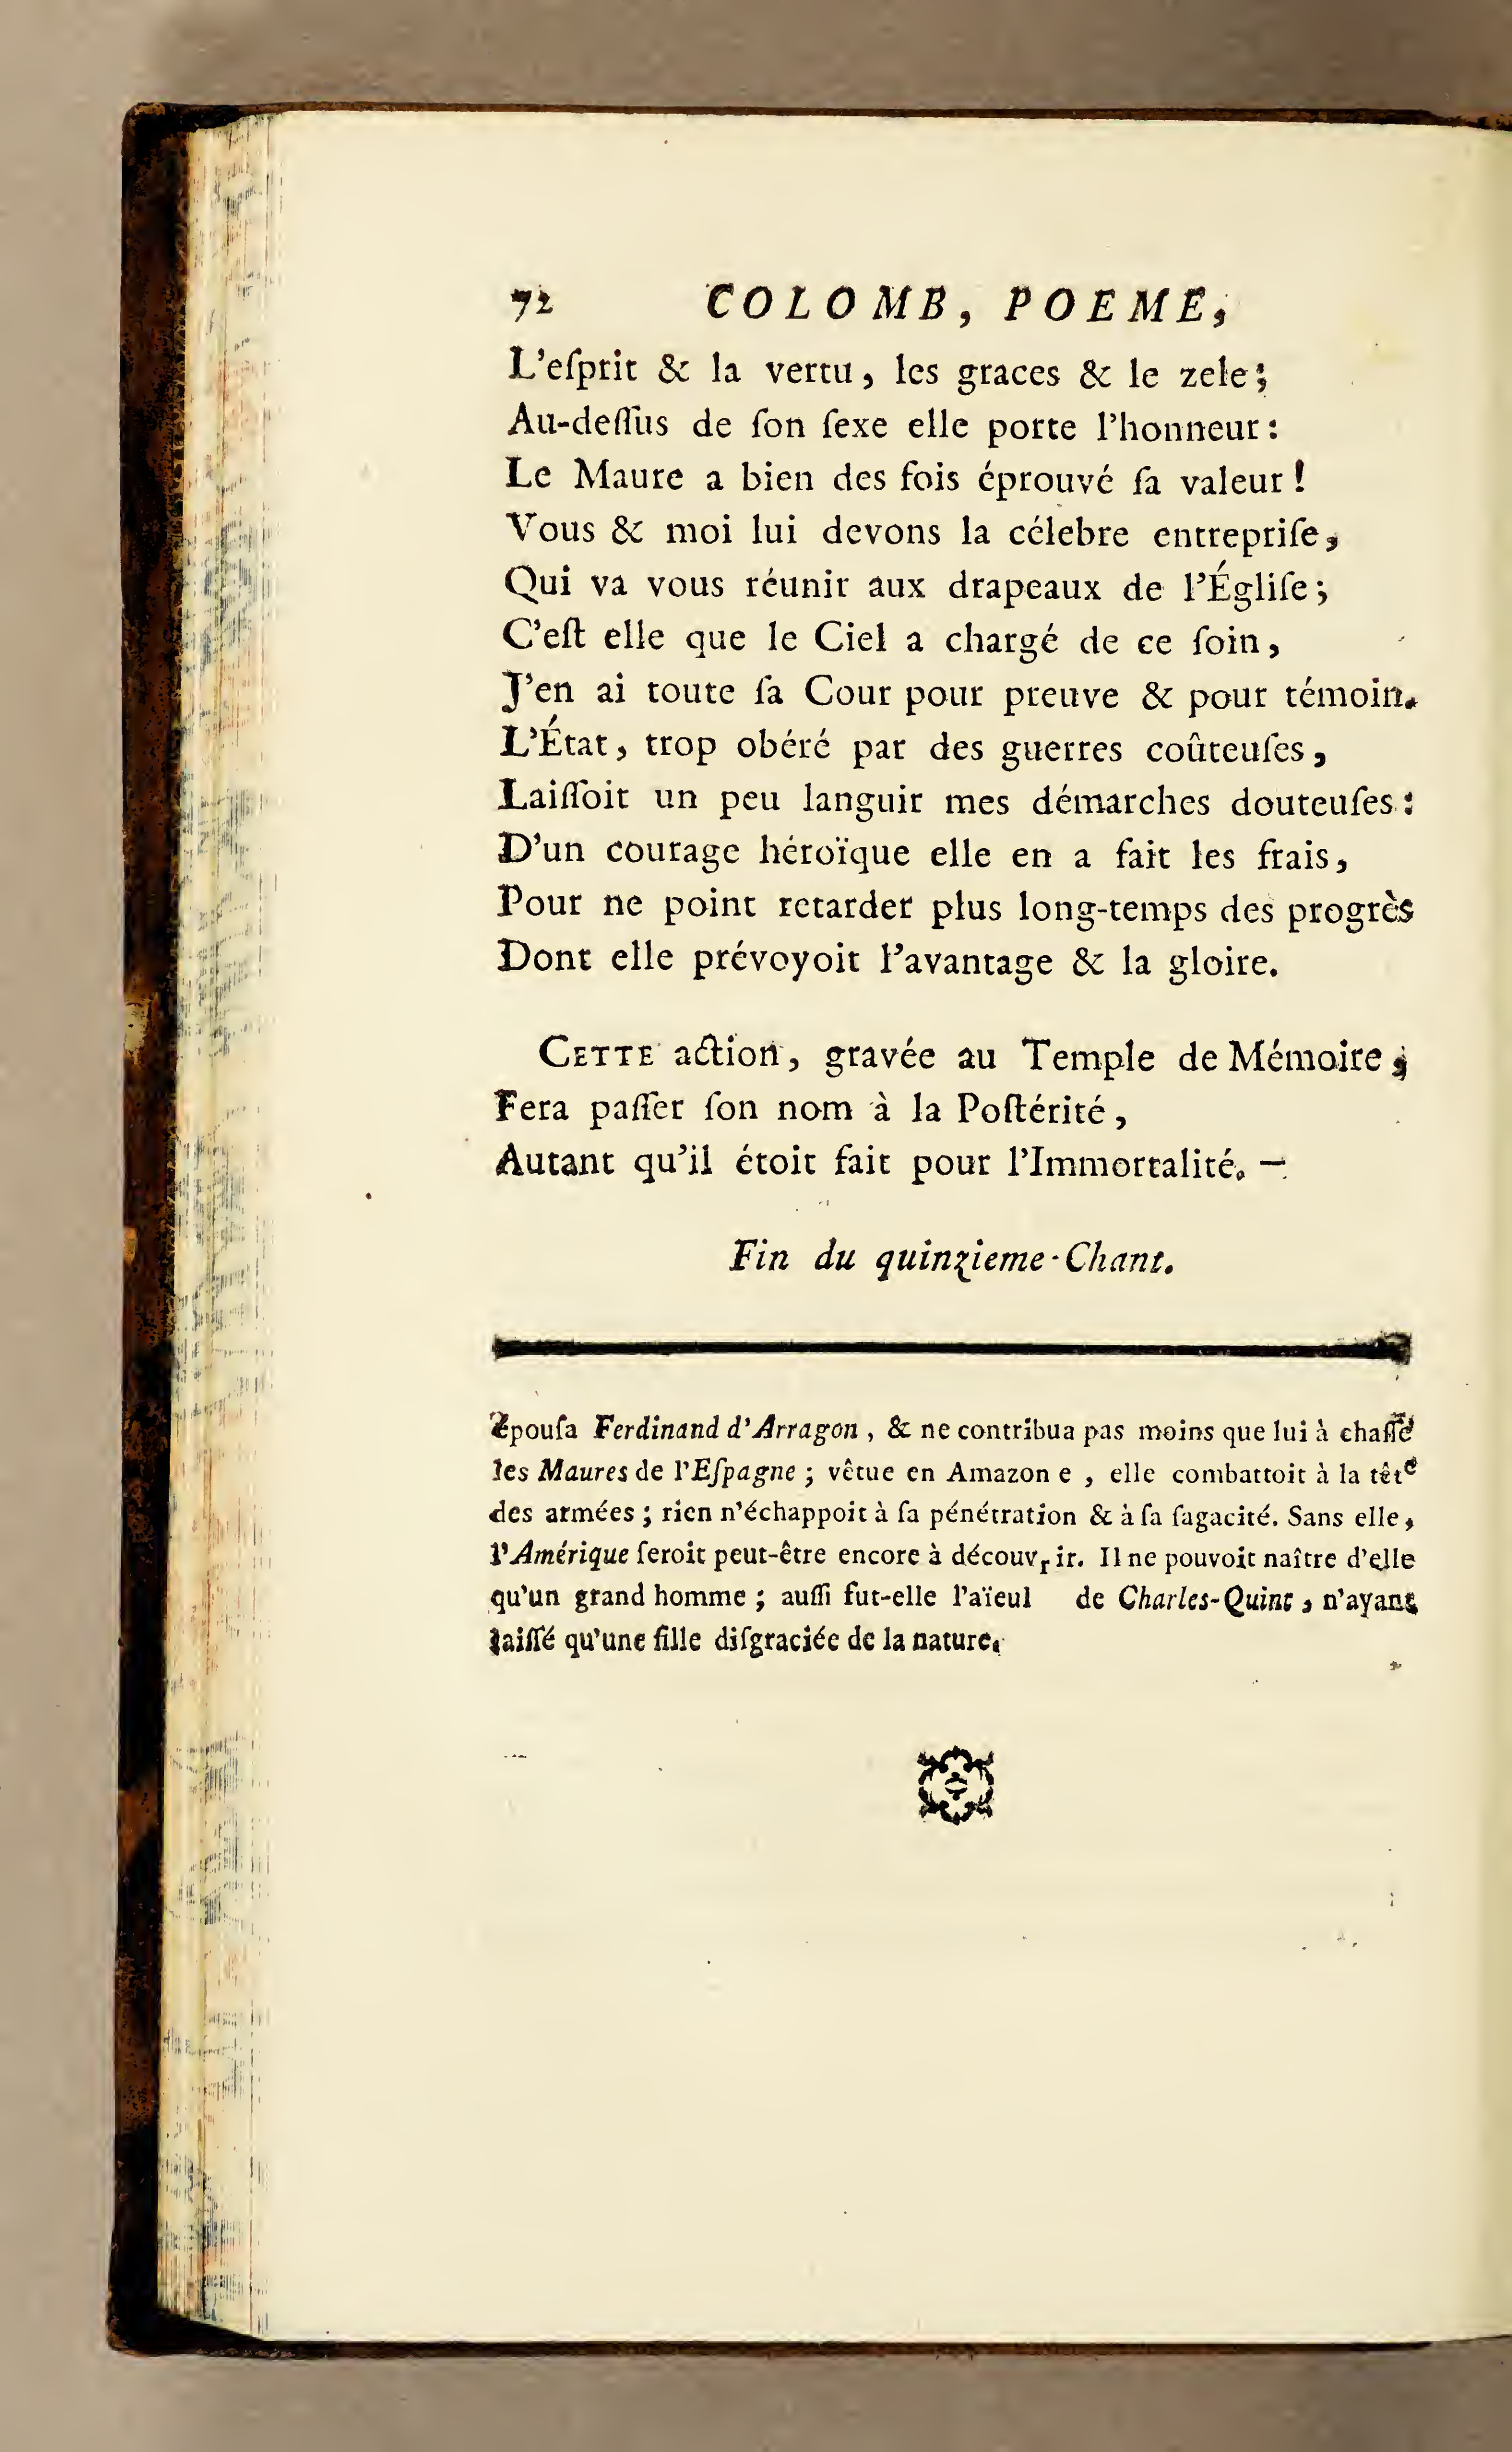 72 COLOMB, POEME,
L'eſprit & la vertu, les graces & le zele;
Au-deſſus de ſon ſexe elle porte l'honneur:
Le Maure a bien des fois éprouvé ſa valeur!
Vous & moi lui devons la célebre entrepriſe,
Qui va vous réunir aux drapeaux de l'Égliſe;
C'eſt elle que le Ciel a chargé de ce ſoin,
J'en ai toute ſa Cour pour preuve & pour témoin.
L'État, trop obéré par des guerres coûteuſes,
Laiſſoit un peu languir mes démarches douteuſes:
D'un courage héroïque elle en a fait les frais,
Pour ne point retarder plus long-temps des progrès
Dont elle prévoyoit l'avantage & la gloire.
CETTE action, gravée au Temple de Mémoire,
Fera paſſer ſon nom à la Poſtérité,
Autant qu'il étoit fait pour l'Immortalité. —
Fin du quinzieme-Chant.
épouſa Ferdinand d'Arragon, & ne contribua pas moins que lui à chaſſé
les Maures de l'Eſpagne; vêtue en Amazon e, elle combattoit à la tête
des armées; rien n'échappoit à ſa pénétration & à ſa ſagacité. Sans elle,
l'Amérique ſeroit peut-être encore à découvrir. Il ne pouvoit naître d'elle
qu'un grand homme; auſſi fut-elle l'aïeul de Charles-Quint, n'ayant
laiſſé qu'une fille diſgraciée de la nature.